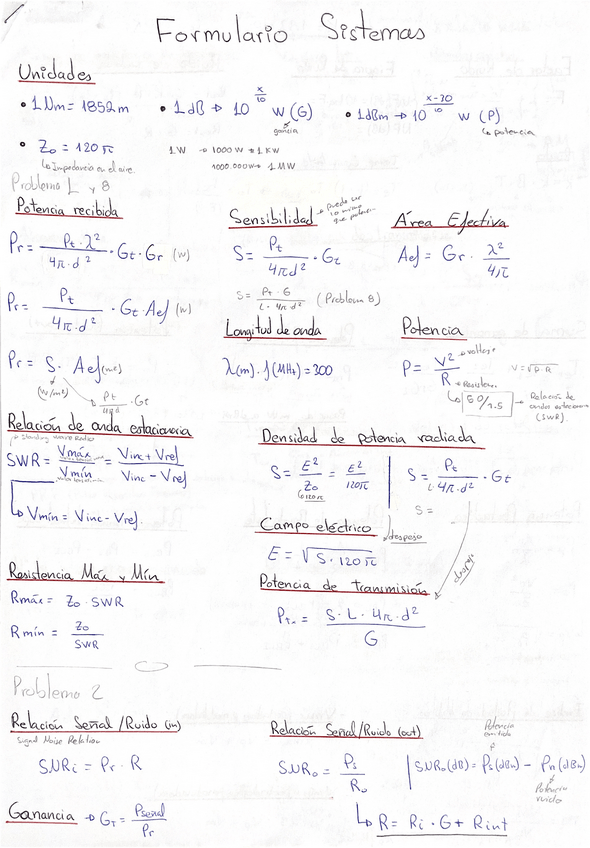 Formulario Sistemas
Unidades
• 1 Nm = 1852 m
• 1 dB → 10^(x/10) W (G)
ganancia
• 1 dBm → 10^((x-30)/10) W (P)
↳ potencia
• Z₀ = 120π
↳ Impedancia en el aire
1 W → 1000 W = 1 KW
1000.000 W → 1 MW
Problema 1 y 8
Potencia recibida
Pr = (Pt · λ²)/(4π · d²) · Gt · Gr (W)
Pr = Pt/(4π · d²) · Gt · Aef (W)
Pr = S · Aef (m²)
(W/m²)
Pt/(4πd²) · Gt
Sensibilidad
puede ser
lo mismo
que potencia
S = Pt/(4πd²) · Gt
S = (Pt · G)/(L · 4πd²) (Problema 8)
Área Efectiva
Aef = Gr · λ²/4π
Longitud de onda
λ(m) · f(MHz) = 300
Potencia
P = V²/R
→ voltaje
→ Resisten.
V = √(P·R)
↳ 50/1.5 → Relación de
onda estacionaria
(SWR)
Relación de onda estacionaria
Standing wave Ratio
SWR = Vmáx/Vmín = (Vinc + Vref)/(Vinc − Vref)
↳ Vmín = Vinc − Vref
Densidad de potencia radiada
S = E²/Z₀ = E²/120π
↳ 120π
S = Pt/(L · 4π · d²) · Gt
S =
Campo eléctrico
→ despejo
E = √(S · 120π)
Resistencia Máx y Mín
Rmáx = Z₀ · SWR
Rmín = Z₀/SWR
Potencia de transmisión
despejo
Ptx = (S · L · 4π · d²)/G
Problema 2
Relación Señal/Ruido (in)
Signal Noise Relation
SNRi = Pr · R
Relación Señal/Ruido (out)
SNR₀ = Ps/R₀
Potencia
emitida
SNR₀(dB) = Ps(dBm) − Pn(dBm)
Potencia
ruido
↳ R = Ri · G + Rint
Ganancia → GT = Pseñal/Pr